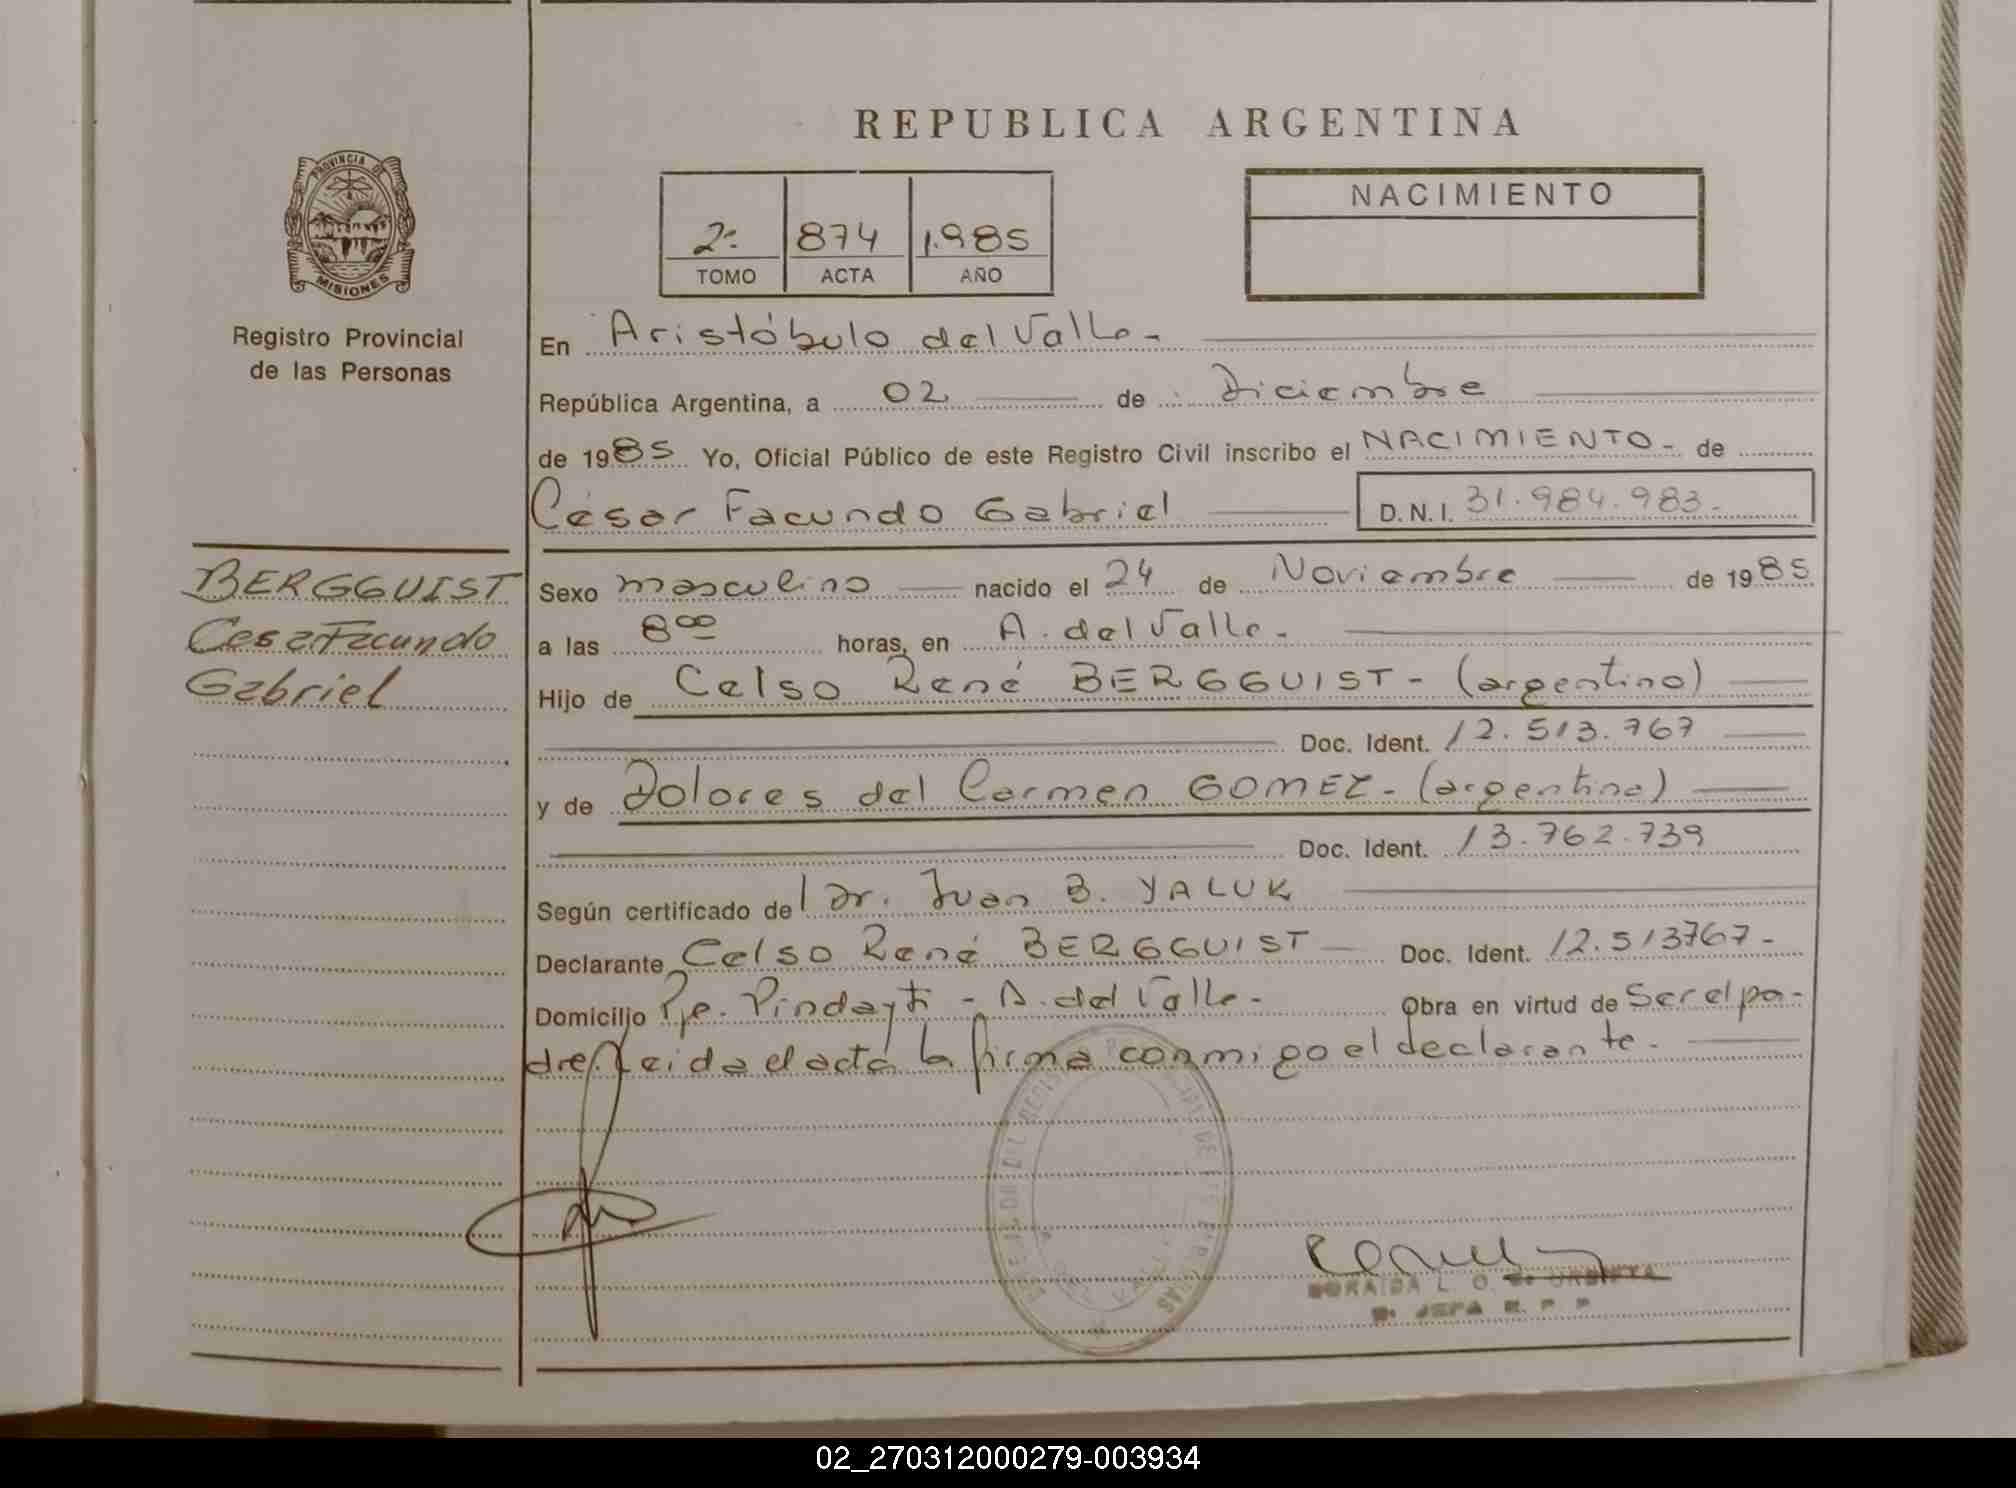 REPUBLICA ARGENTINA
PROVINCIA DE
MISIONES
Registro Provincial
de las Personas
2º 874 1.985
TOMO ACTA AÑO
NACIMIENTO
En Aristóbulo del Valle-
República Argentina, a 02 de Diciembre
de 1985 Yo, Oficial Público de este Registro Civil inscribo el NACIMIENTO- de
César Facundo Gabriel D.N.I. 31.984.983-
BERGGUIST
Cesar Facundo
Gabriel
Sexo masculino nacido el 24 de Noviembre de 1985
a las 8ºº horas, en A. del Valle-
Hijo de Celso René BERGGUIST- (argentino)
Doc. Ident. 12.513.767
y de Dolores del Carmen GOMEZ- (argentina)
Doc. Ident. 13.762.739
Según certificado del Dr. Juan B. YALUK
Declarante Celso René BERGGUIST Doc. Ident. 12.513767-
Domicilio Pje. Pindayti - A. del Valle- Obra en virtud de ser el pa-
dre. Leida el acta la firma conmigo el declarante-
L. O. de URBIETA
JEFA R. P. P.
02_270312000279-003934